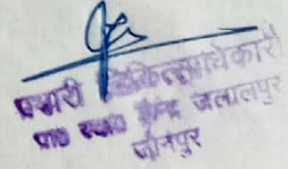 प्रभारी चिकित्साधिकारी
प्रा० स्वा० केन्द्र जलालपुर
जौनपुर